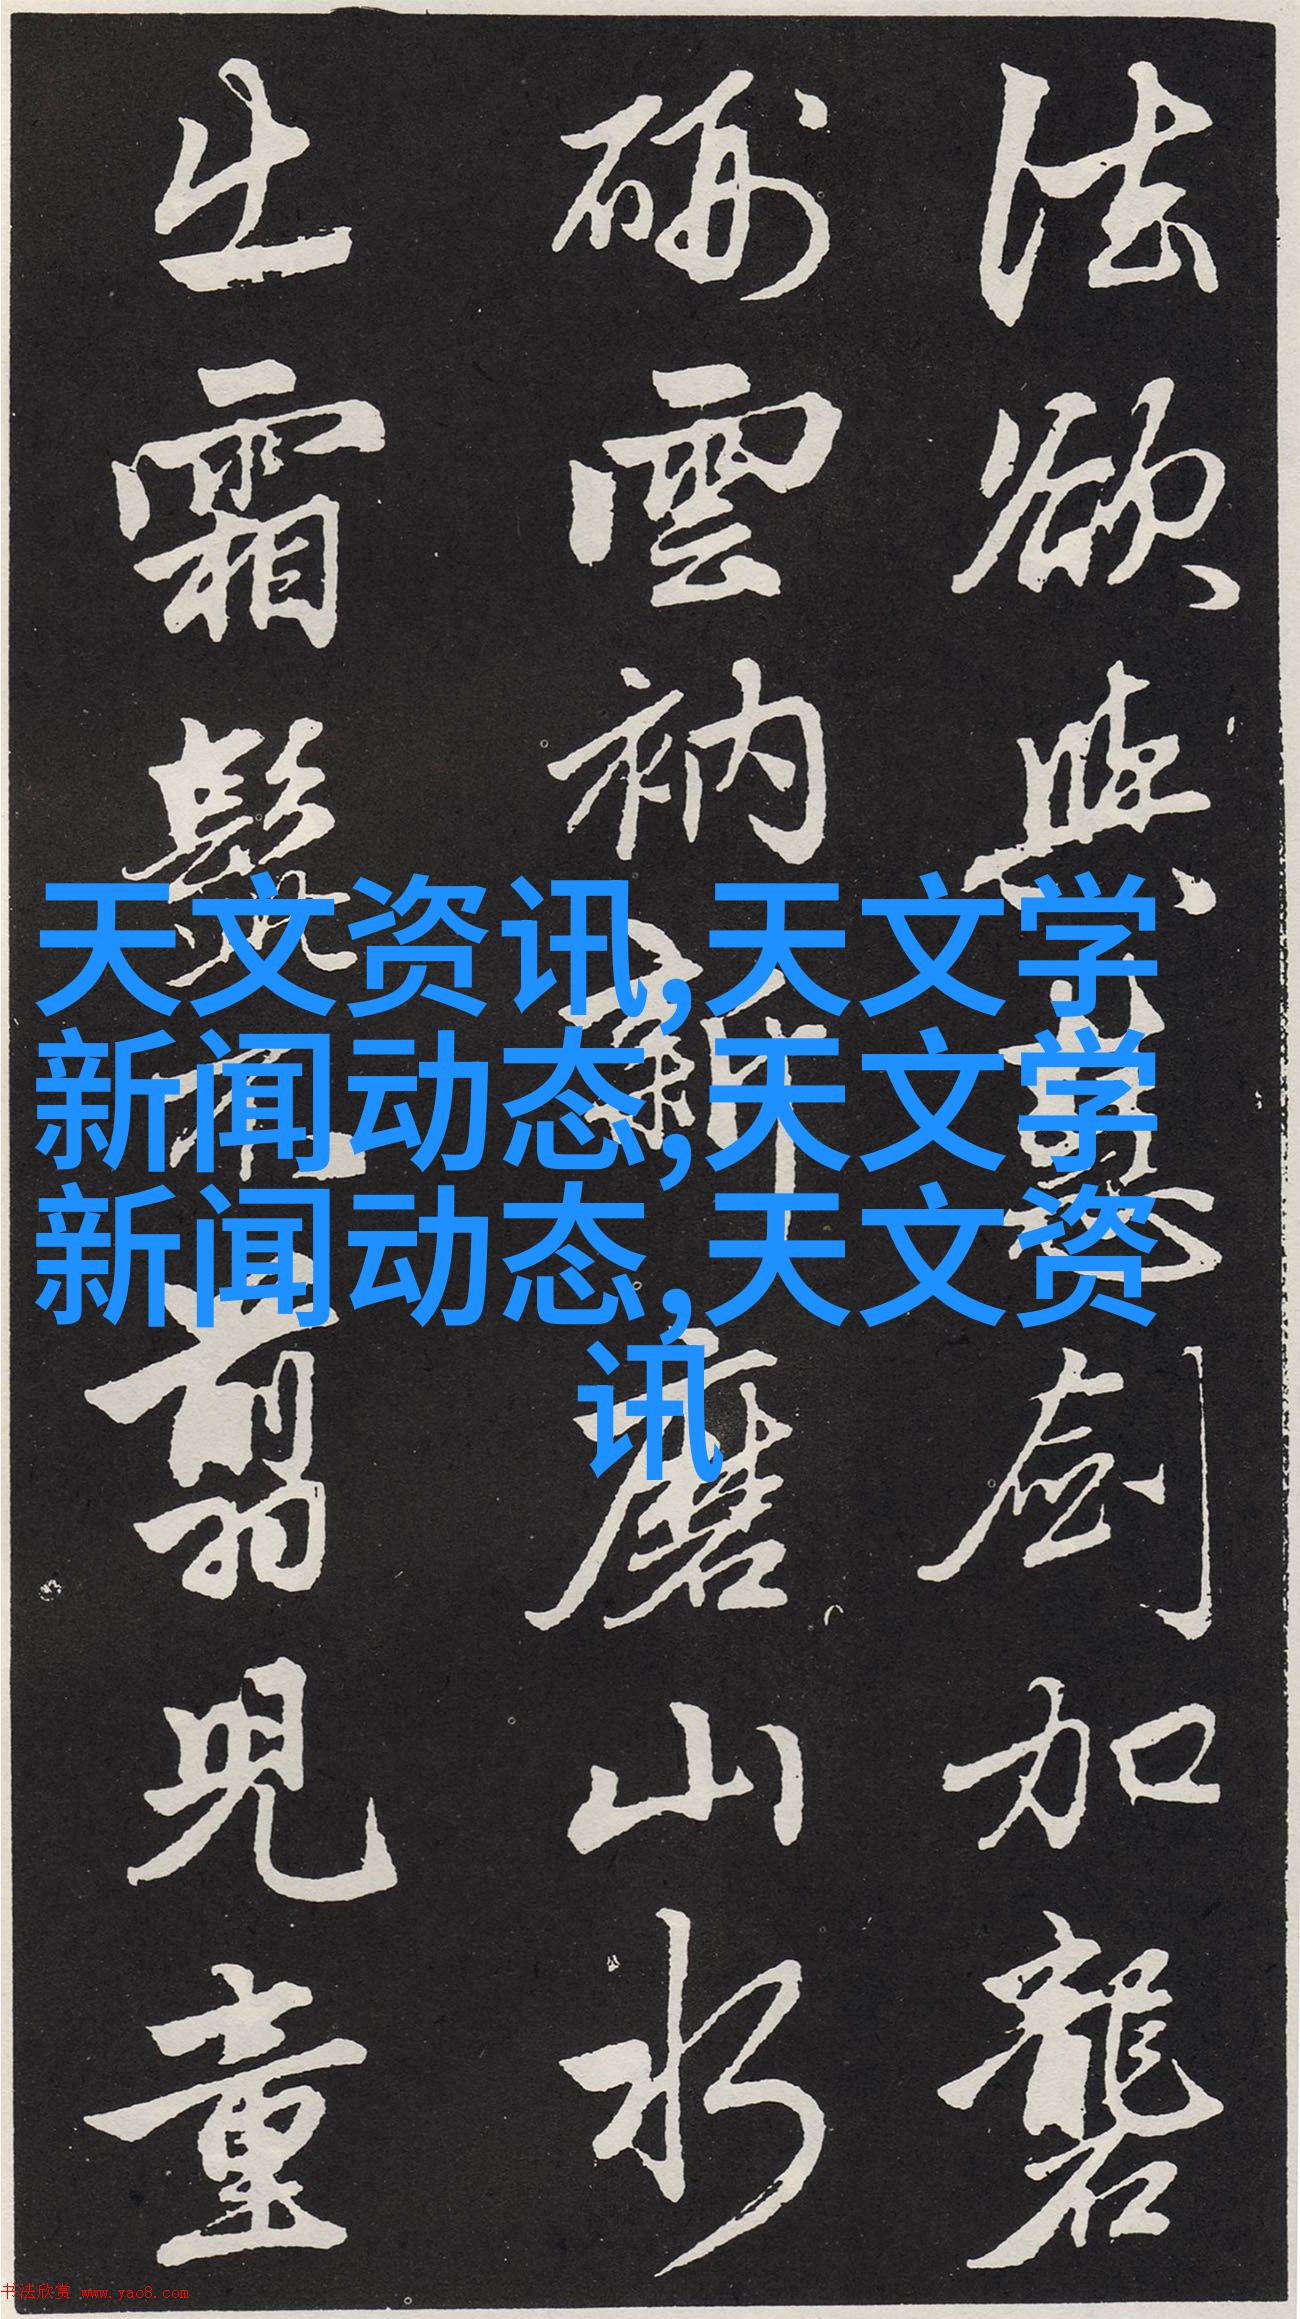 法欲與慧劍加礱
硎雲衲新磨山水
出霜髭不翦兒童
天文资讯,天文学
新闻动态,天文学
新闻动态,天文资
讯
书法欣赏 www.yac8.com